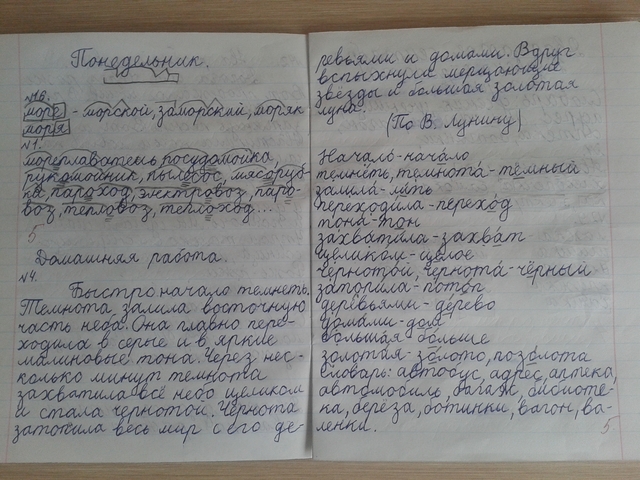 Понедельник.
№16.
море - морской, заморский, моряк
моря
№1.
мореплаватель, посудомойка,
рукомойник, пылесос, мясоруб-
ка, пароход, электровоз, паро-
воз, тепловоз, теплоход...
5
Домашняя работа.
№4.
Быстро начало темнеть.
Темнота залила восточную
часть неба. Она плавно пере-
ходила в серые и в яркие
малиновые тона. Через нес-
колько минут темнота
захватила всё небо целиком
и стала чернотой. Чернота
затопила весь мир с его де-
ревьями и домами. Вдруг
вспыхнули мерцающие
звёзды и большая золотая
луна.
(По В. Лунину)
Начало - начало
темнеть, темнота - тёмный
залила - лить
переходила - переход
тона - тон
захватила - захват
целиком - целое
чернотой, чернота - чёрный
затопила - потоп
деревьями - дерево
домами - дом
большая больше
золотая - золото, позолота
словарь: автобус, адрес, аптека,
автомобиль, багаж, библиоте-
ка, берёза, ботинки, вагон, ва-
ленки.
5